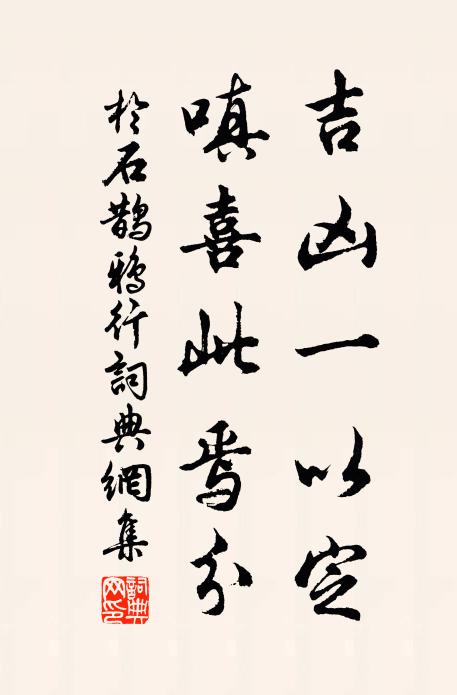 吉凶一以定
嗔喜此焉分
於石鵲鴉行詞典網集
詞典網印